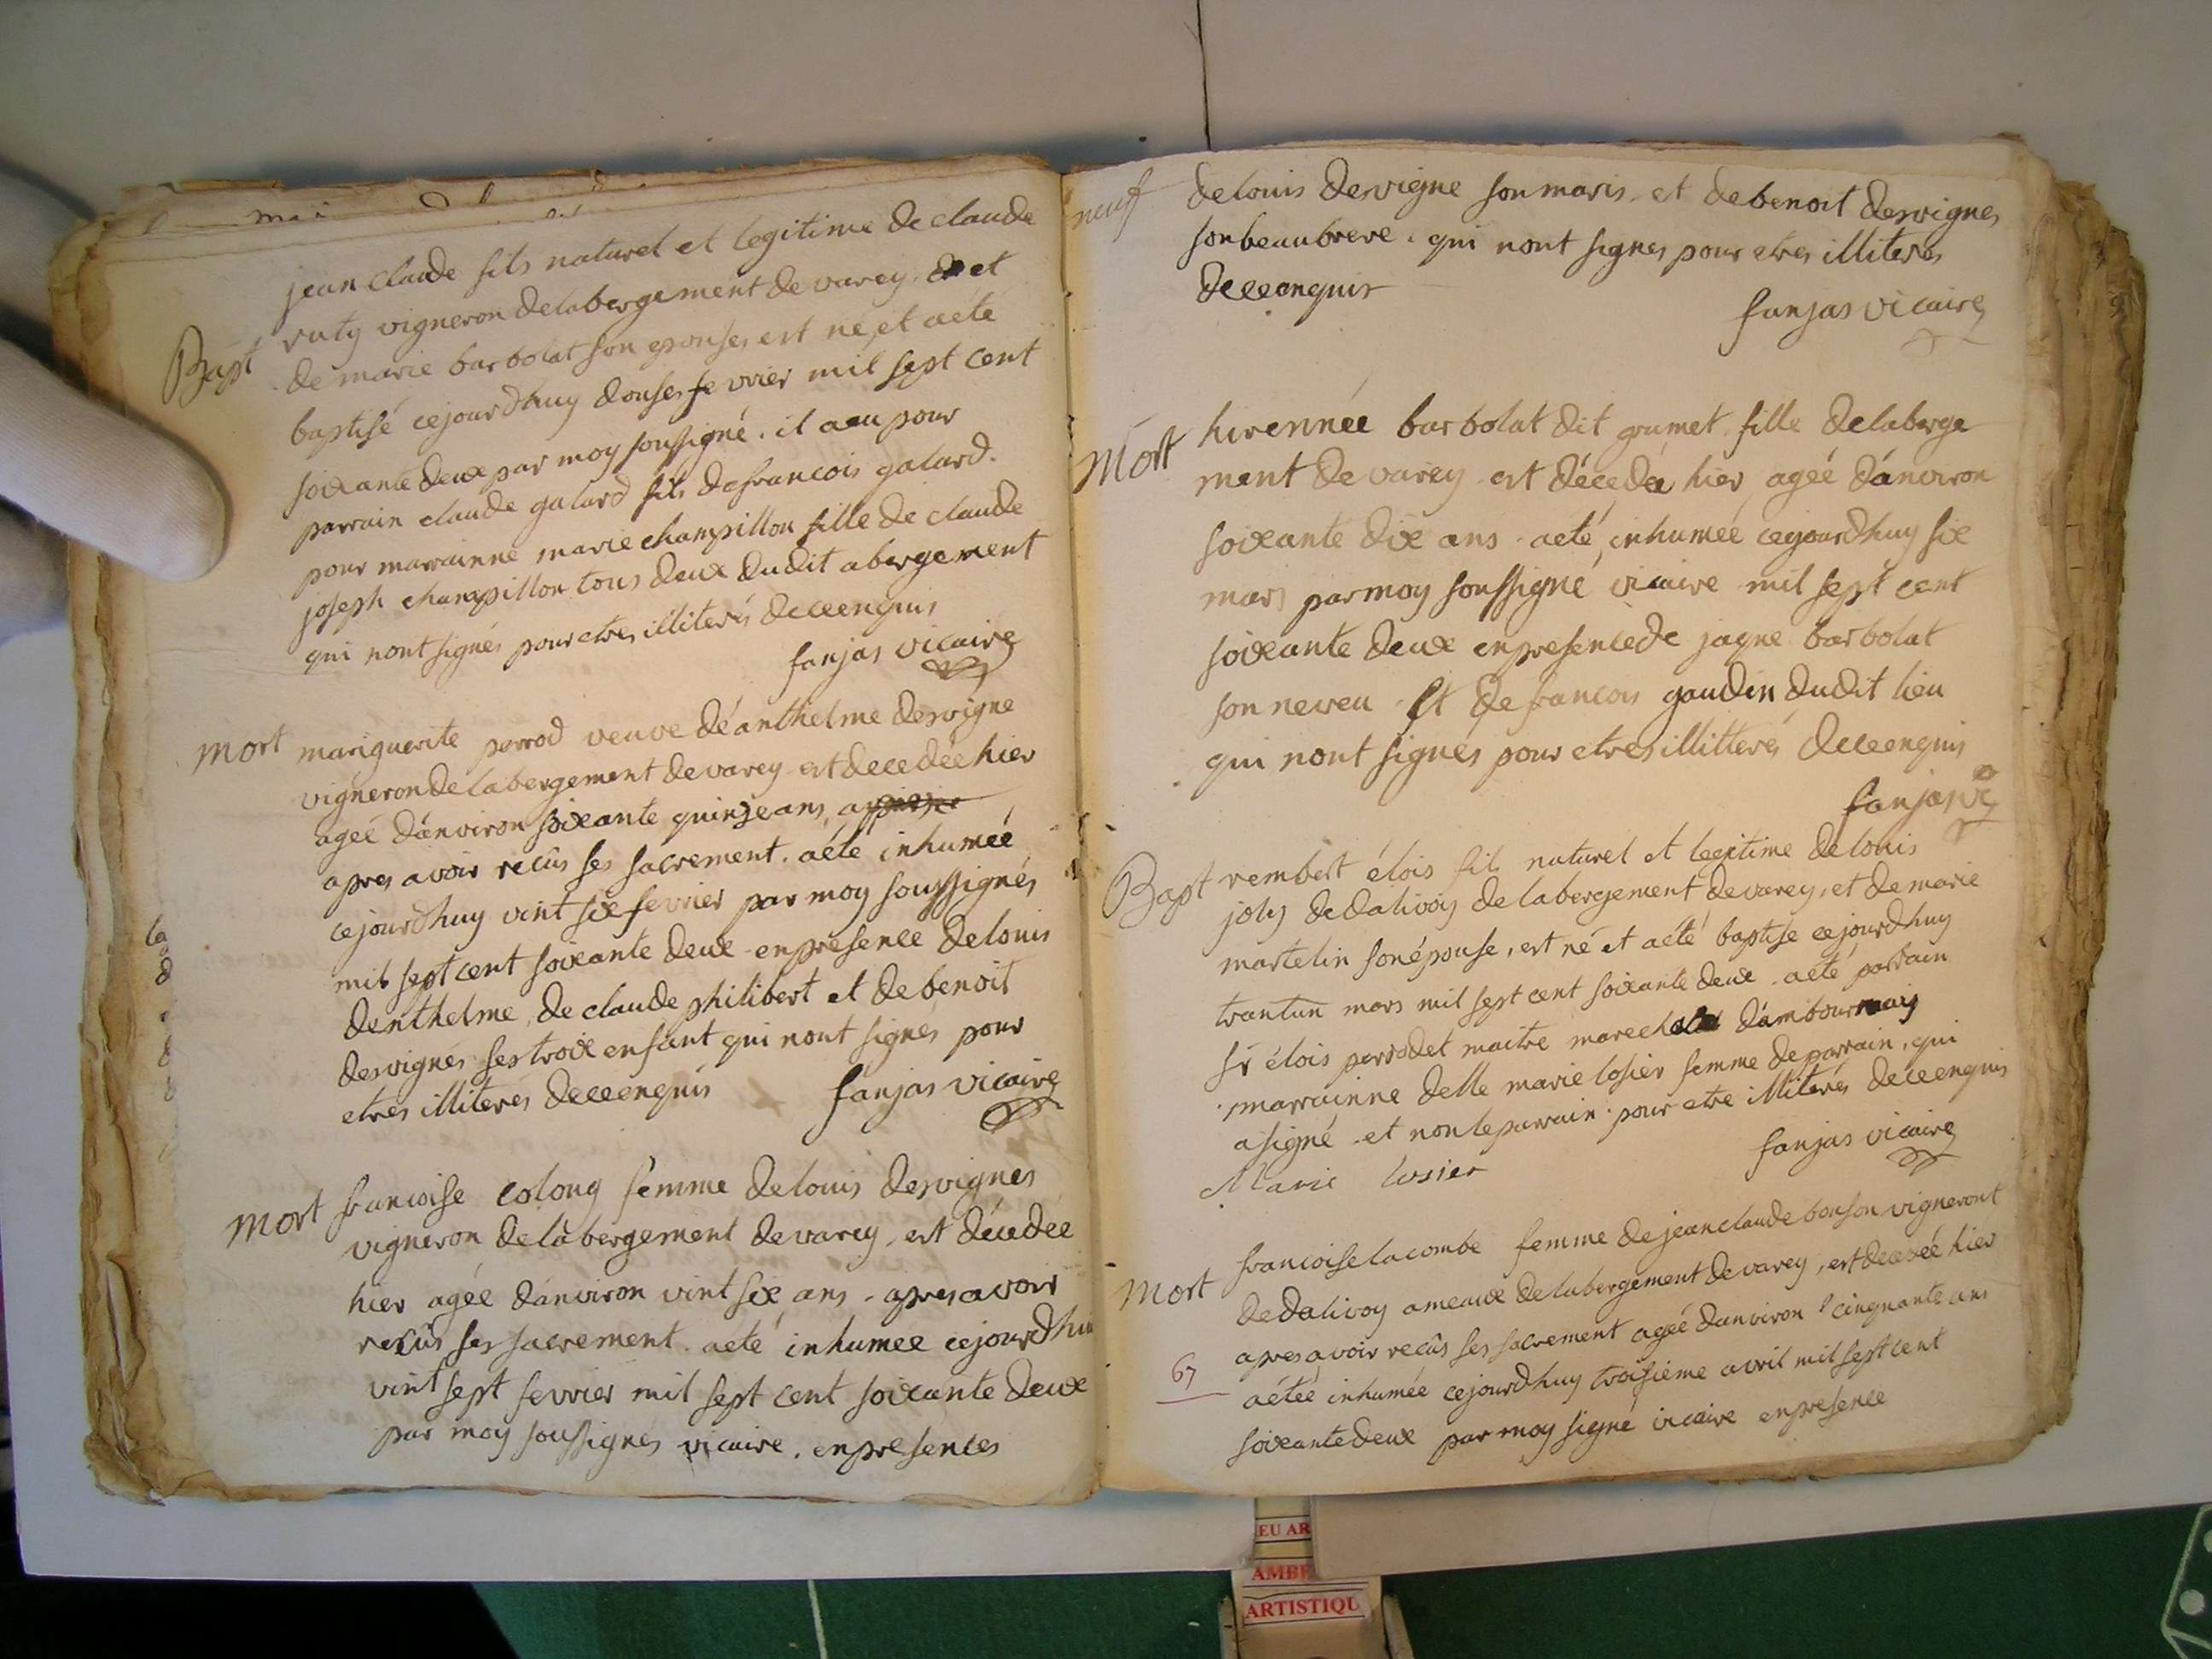 Bapt
jean claude fils naturel et legitime de claude
ruty vigneron delabergement de varey. et
de marie barbolat son epouses est né, et aeté
baptisé cejourdhuy douses fevrier mil sept cent
soixante deux par moy soussigné. il aeu pour
parrain claude galard fils defrancois galard.
pour marrainne marie champillon fille de claude
joseph champillon tous deux dudit abergement
qui nont signés pour etres illiterés deceenquis
fanjas vicaire
mort
mariguerite perrod veuve déanthelme desvigne
vigneron delabergement devarey est decedée hier
ageé dánviron soixante quinze ans,
apres avoir recûs ses sacrement. aété inhumeé
cejourdhuy vint six fevrier par moy soussignés
mil sept cent soixante deux enpresence delouis
denthelme, de claude philibert et debenoit
desvignes ses troix enfant qui nont signés pour
etres illiterés deceenquis fanjas vicaire
mort
francoise colong femme delouis desvignes
vigneron delàbergement devarey, est décedée
hier agée dánviron vint six ans. apres avoir
recûs ses sacrement. aeté inhumee cejourdhui
vint sept fevrier mil sept cent soixante deux
par moy soussignés vicaire. enpresences
neuf
delouis desvigne son maris. et debenoit desvignes
sonbeaubrere. qui nont signes pour etres illiteres
deceenquis
fanjas vicaire
Mort
hirennée barbolat dit grumet fille delaberge
ment de varey est décedeé hier ageé dánviron
soixante dix ans. aeté inhumeé cejourdhuy six
mars parmoy soussigné vicaire mil sept cent
soixante deux enpresencede jaque barbolat
son neveu Et de francois gaudin dudit lieu
qui nont signés pour etres illitterés deceenquis
fanjas vic
Bapt
rembert élois fils naturel et legitime delouis
joly dedalivoy delabergement devarey, et demarie
martelin sonépouse, est né et aété baptise cejourdhuy
trantun mars mil sept cent soixante deux. aeté parrain
sr élois perrodet maitre marechal dámbournay
marrainne delle marie losier femme deparrain, qui
asigné et nonleparrain pour etre illiterés deceenquis
fanjas vicaire
Marie losier
mort
francoiselacombe femme dejeanclaude bonson vigneront
dedalivoy ameaux delabergement devarey, est decedeé hier
apres avoir recûs ses sacrement ageé danviron cinquante ans
67
aéteé inhumée cejourdhuy troisieme avril mil sept cent
soixantedeux par moy signé vicaire enpresence
EU AR
AMBE
ARTISTIQU